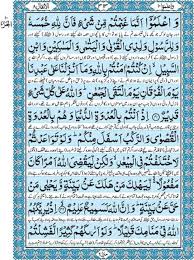 واعلموا ١٠
الانفال ٨
وَاعْلَمُوْۤا اَنَّمَا غَنِمْتُمْ مِّنْ شَیْءٍ فَاَنَّ لِلّٰهِ خُمُسَهٗ
وَلِلرَّسُوْلِ وَلِذِی الْقُرْبٰی وَالْیَتٰمٰی وَالْمَسٰكِیْنِ وَابْنِ
السَّبِیْلِ اِنْ كُنْتُمْ اٰمَنْتُمْ بِاللّٰهِ وَمَاۤ اَنْزَلْنَا عَلٰی عَبْدِنَا
یَوْمَ الْفُرْقَانِ یَوْمَ الْتَقَی الْجَمْعٰنِ وَاللّٰهُ عَلٰی كُلِّ شَیْءٍ
قَدِیْرٌ اِذْ اَنْتُمْ بِالْعُدْوَةِ الدُّنْیَا وَهُمْ بِالْعُدْوَةِ
الْقُصْوٰی وَالرَّكْبُ اَسْفَلَ مِنْكُمْ وَلَوْ تَوَاعَدْتُّمْ
لَاخْتَلَفْتُمْ فِی الْمِیْعٰدِ وَلٰكِنْ لِّیَقْضِیَ اللّٰهُ اَمْرًا كَانَ
مَفْعُوْلًا لِّیَهْلِكَ مَنْ هَلَكَ عَنْ بَیِّنَةٍ وَّیَحْیٰی مَنْ حَیَّ
عَنْ بَیِّنَةٍ وَاِنَّ اللّٰهَ لَسَمِیْعٌ عَلِیْمٌ اِذْ یُرِیْكَهُمُ
اللّٰهُ فِیْ مَنَامِكَ قَلِیْلًا وَلَوْ اَرٰىكَهُمْ كَثِیْرًا لَّفَشِلْتُمْ